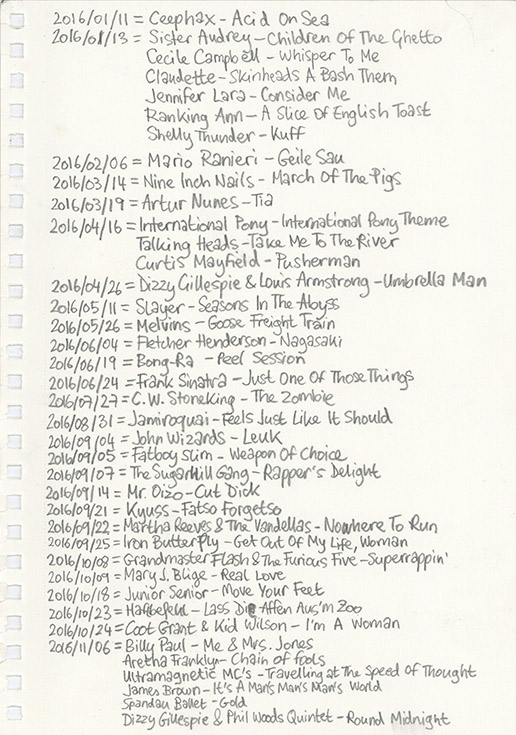 2016/01/11 = Ceephax - Acid On Sea
2016/01/13 = Sister Audrey - Children Of The Ghetto
Cecile Campbell - Whisper To Me
Claudette - Skinheads A Bash Them
Jennifer Lara - Consider Me
Ranking Ann - A Slice Of English Toast
Shelly Thunder - Kuff
2016/02/06 = Mario Ranieri - Geile Sau
2016/03/14 = Nine Inch Nails - March Of The Pigs
2016/03/19 = Artur Nunes - Tia
2016/04/16 = International Pony - International Pony Theme
Talking Heads - Take Me To The River
Curtis Mayfield - Pusherman
2016/04/26 = Dizzy Gillespie & Louis Armstrong - Umbrella Man
2016/05/11 = Slayer - Seasons In The Abyss
2016/05/26 = Melvins - Goose Freight Train
2016/06/04 = Fletcher Henderson - Nagasaki
2016/06/19 = Bong-Ra - Peel Session
2016/06/24 = Frank Sinatra - Just One Of Those Things
2016/07/27 = C.W. Stoneking - The Zombie
2016/08/31 = Jamiroquai - Feels Just Like It Should
2016/09/04 = John Wizards - Leuk
2016/09/05 = Fatboy Slim - Weapon Of Choice
2016/09/07 = The Sugarhill Gang - Rapper's Delight
2016/09/14 = Mr. Oizo - Cut Dick
2016/09/21 = Kyuss - Fatso Forgetso
2016/09/22 = Martha Reeves & The Vandellas - Nowhere To Run
2016/09/25 = Iron Butterfly - Get Out Of My Life, Woman
2016/10/08 = Grandmaster Flash & The Furious Five - Superrappin'
2016/10/09 = Mary J. Blige - Real Love
2016/10/18 = Junior Senior - Move Your Feet
2016/10/23 = Haftbefehl - Lass Die Affen Aus'm Zoo
2016/10/24 = Coot Grant & Kid Wilson - I'm A Woman
2016/11/06 = Billy Paul - Me & Mrs. Jones
Aretha Franklyn - Chain of fools
Ultramagnetic MC's - Travelling at The Speed of Thought
James Brown - It's A Man's Man's Man's World
Spandau Ballet - Gold
Dizzy Gillespie & Phil Woods Quintet - Round Midnight